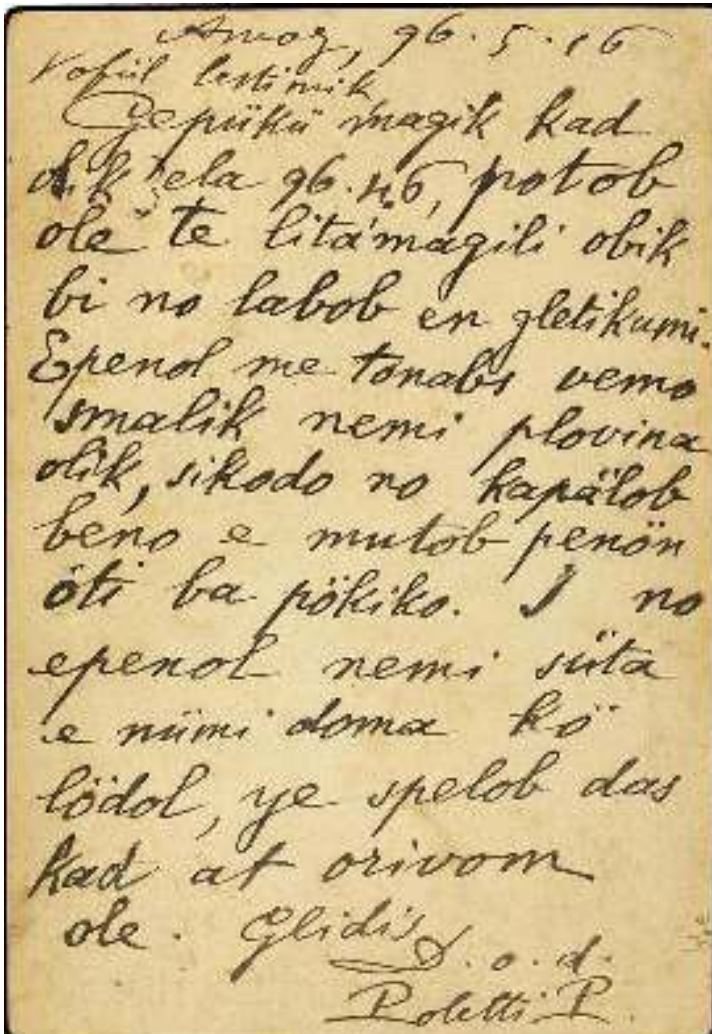 96.5.16
Vofül lestimik
Gepükü magik kad
olik ela 96.4.6, potob
ole te litamagili obik
bi no labob en gletikumi.
Epenol me tonabs vemo
smalik nemi plovina
olik, sikodo no kapälob
beno e mutob penön
öti ba pökiko. I no
epenol nemi süta
e nümi doma kö
lödol, ye spelob das
kad at orivom
ole. Glidis
D. o. d.
Poletti P.